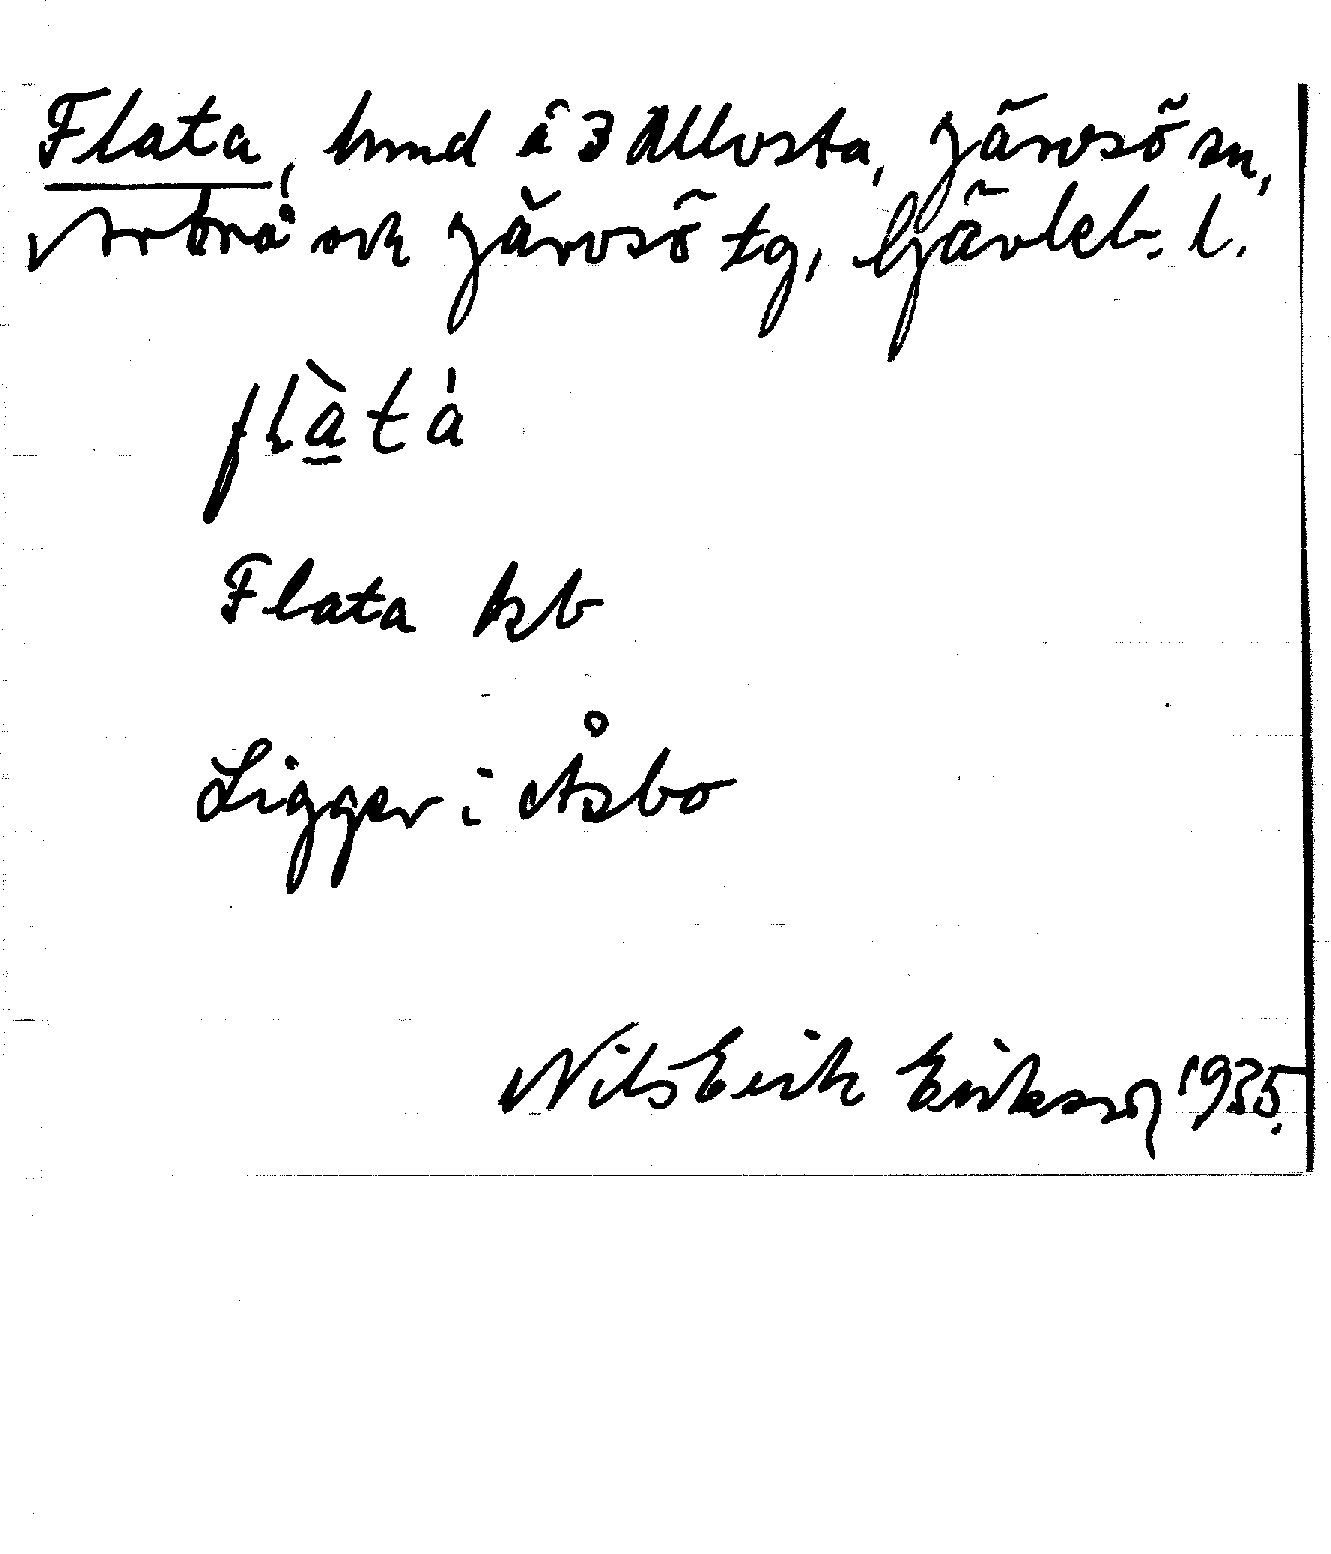 Flata, lund å 3 Ullvsta, Järvsö sn,
Arbrå och Järvsö tg, Gävleb. l.
flàtá
Flata kb
Ligger i Åsbo
Nils Erik Eriksson 1935.